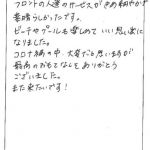 フロントの人達のサービスがきめ細やかで
素晴らしかったです。
ビーチやプールも楽しめていい思い出に
なりました。
コロナ禍の中、大変だと思いますが
最高のおもてなしをありがとう
ございました。
また来たいです!